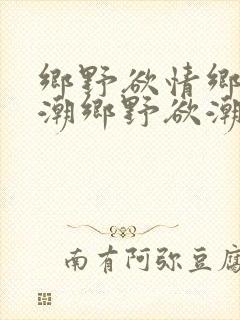 鄉野欲情鄉
潮鄉野欲潮
南有阿弥豆腐